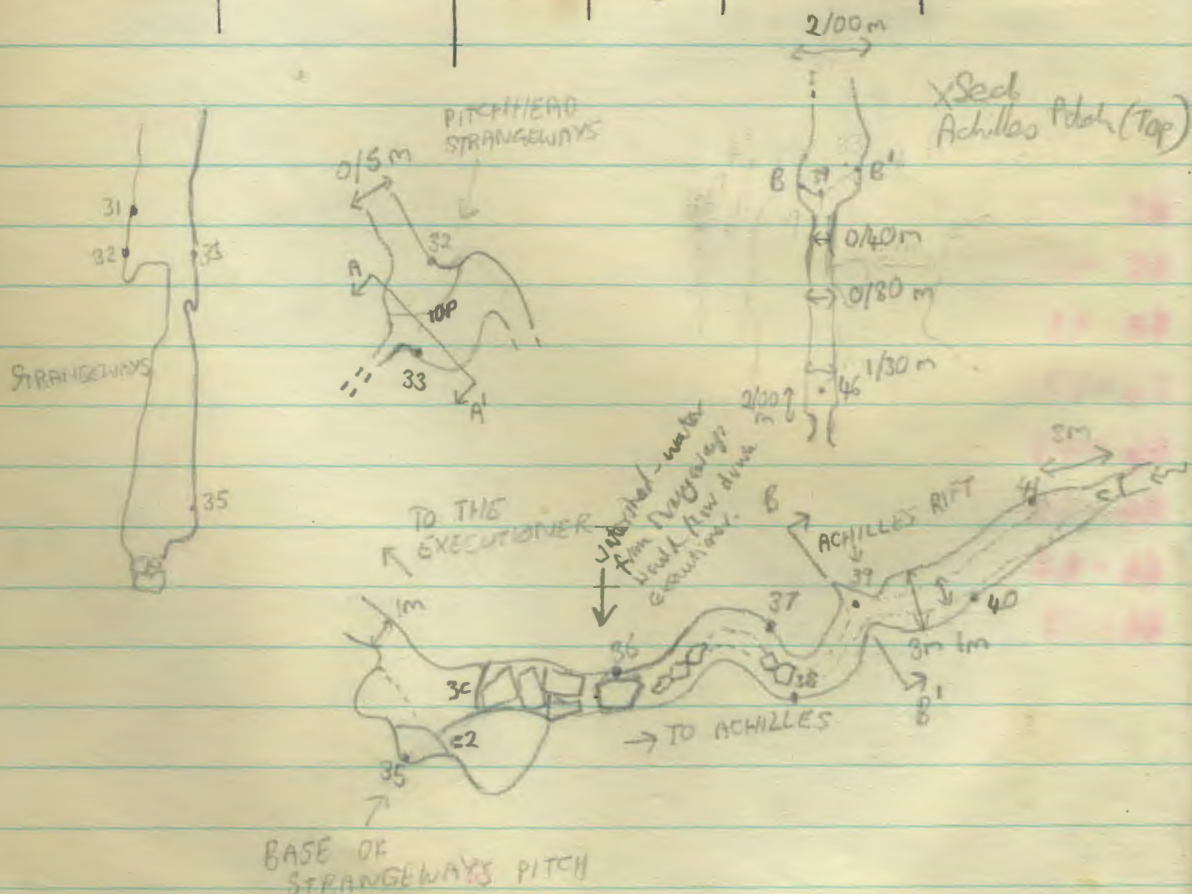 2/00 m
XSect
Achilles Pitch (Top)
PITCHHEAD
STRANGEWAYS
0/5 m
31
32
33
STRANGEWAYS
35
32
A
TOP
33
A'
B
39
B'
0/40 m
0/80 m
1/30 m
46
2/00
m
TO THE
EXECUTIONER
watershed - water
from Strangeways
would flow down
executioner.
B
ACHILLES RIFT
41
3m
39
40
3m 1m
B'
1m
36
37
38
3c
=2
35
→ TO ACHILLES
BASE OF
STRANGEWAYS PITCH